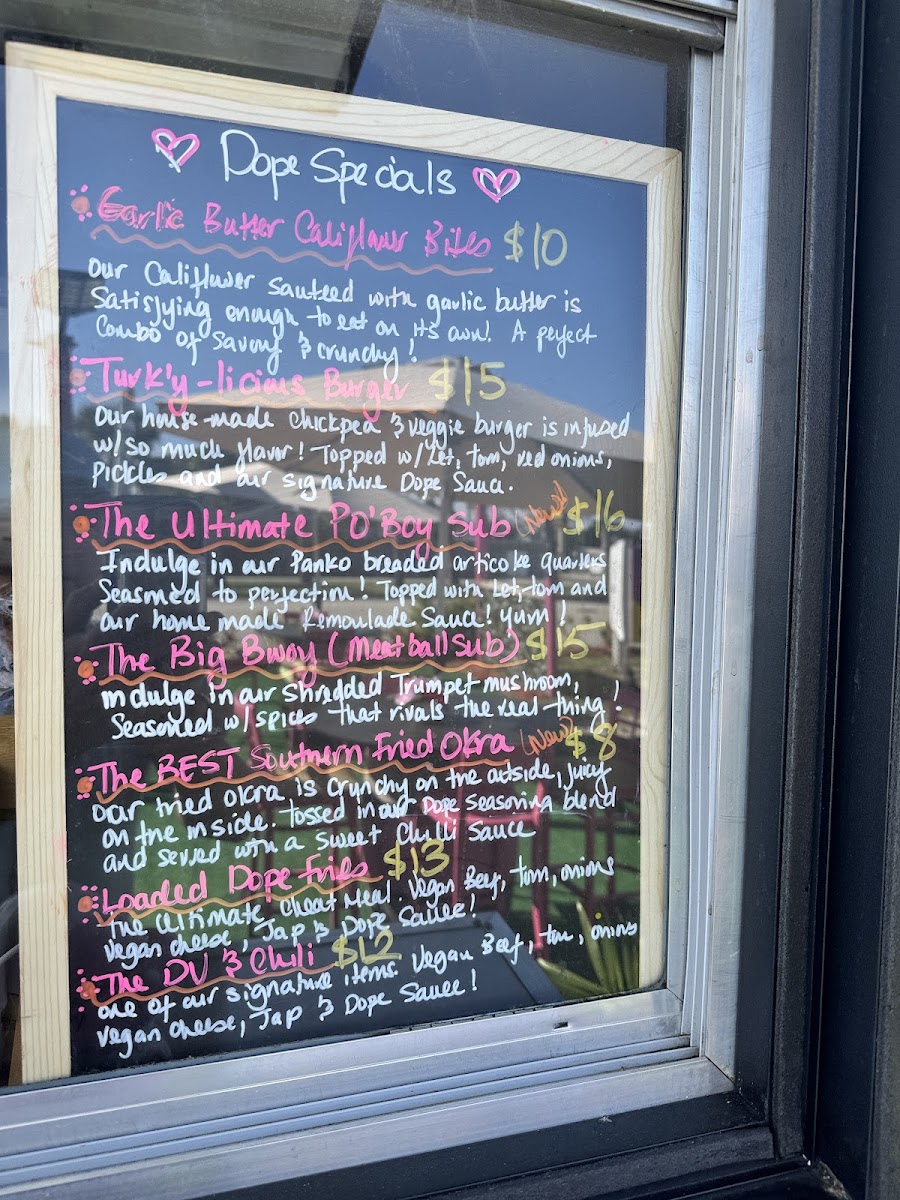 Dope Specials
Garlic Butter Califlawr Bites $10
Our Califlawer sauteed with garlic butter is
satisfying enough to eat on its own! A perfect
combo of savory & crunchy!
Turk'y-licious Burger $15
Our house-made chickpea & veggie burger is infused
w/so much flavor! Topped w/Let, tom, red onions,
pickles and our signature Dope Sauce.
The Ultimate Po'Boy Sub (New) $16
Indulge in our Panko breaded articoke quarters
Seasoned to perfection! Topped with Let, tom and
our home made Remoulade Sauce! Yum!
The Big Bwoy (Meatball Sub) $15
Indulge in our shredded Trumpet mushroom,
Seasoned w/spices that rivals the real thing!
The BEST Southern Fried Okra (New) $8
Our fried okra is crunchy on the outside, juicy
on the inside. Tossed in our Dope seasoning blend
and served with a sweet Chilli Sauce
Loaded Dope Fries $13
The Ultimate, cheat meal. Vegan Beef, tom, onions
vegan cheese, Jap & Dope Sauce!
The DV & Chili $12
one of our signature items. Vegan Beef, tom, onions
vegan cheese, Jap & Dope Sauce!